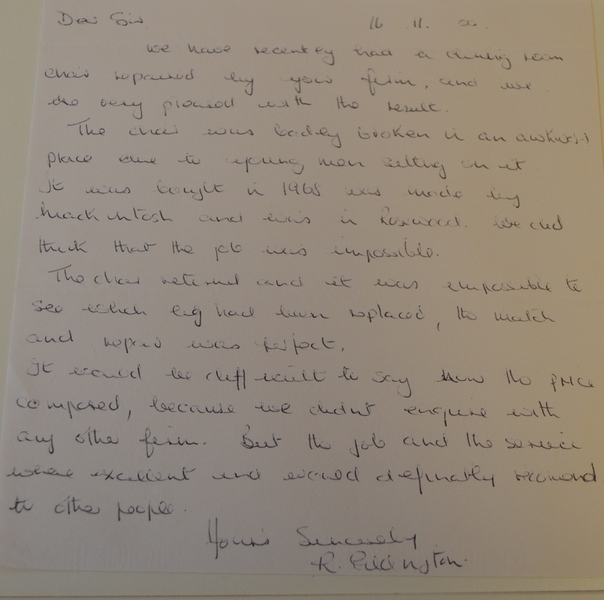 Dear Sir 16 11 00.
We have recently had a dining room
chair repaired by your firm, and we
are very pleased with the result.
The chair was badley broken in an awkward
place due to young men sitting on it
It was bought in 1968 was made by
Mackintosh and was in Roswood. We did
think that the job was impossible.
The chair returned and it was impossible to
see which leg had been replaced, the match
and repair was perfect.
It would be difficult to say how the price
compared, because we didn't enquire with
any other firm. But the job and the service
where excellent and would definatly recomond
to other people.
Yours Sincerely
R.